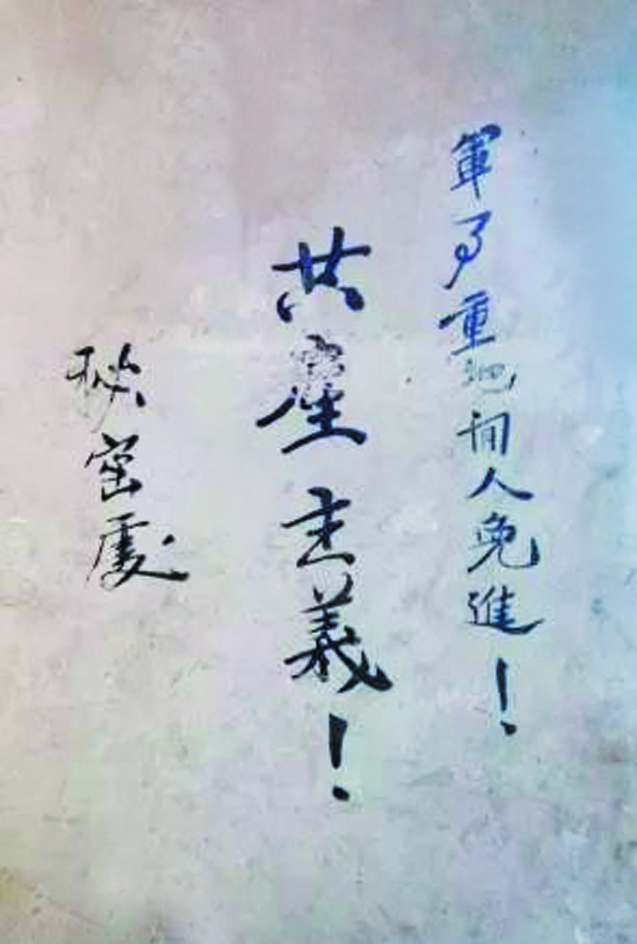 軍事重地閒人免進！
共產主義！
秘密處